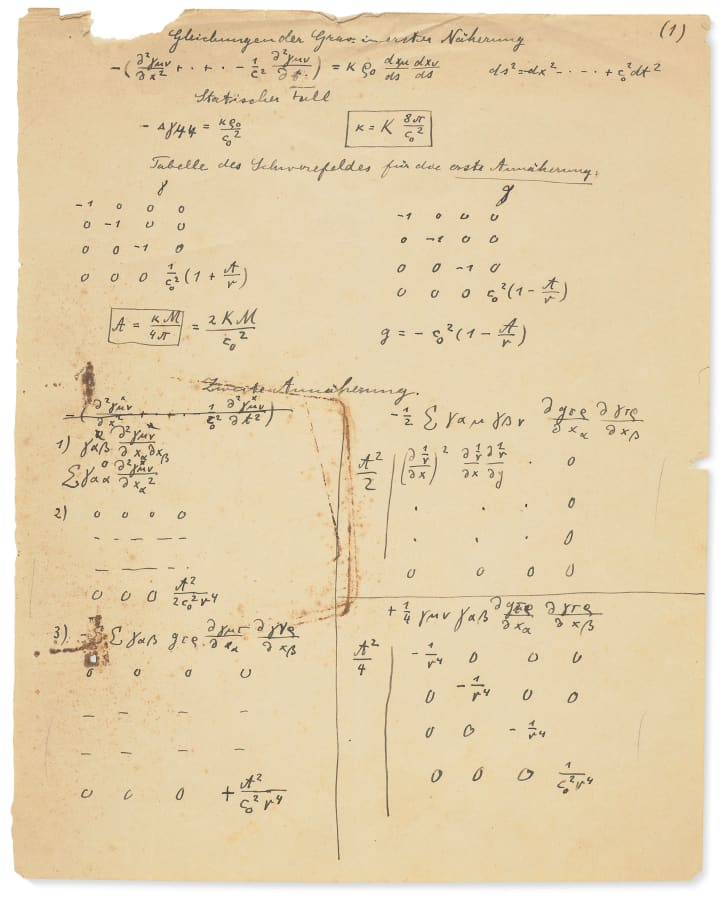 (1)
Gleichungen der Grav. in erster Näherung
-(∂²γμν/∂x² + · + · - 1/c² ∂²γμν/∂t²) = κ ρ₀ dxμ/ds dxν/ds    ds² = -dx² - · - · + c₀²dt²
Statischer Fall
- Δγ44 = κρ₀/c₀²    κ = K 8π/c₀²
Tabelle des Schwerefeldes für die erste Annäherung.
γ    g
-1 0 0 0    -1 0 0 0
0 -1 0 0    0 -1 0 0
0 0 -1 0    0 0 -1 0
0 0 0 1/c₀²(1 + A/r)    0 0 0 c₀²(1 - A/r)
A = κM/4π = 2KM/c₀²    g = - c₀²(1 - A/r)
Zweite Annäherung.
-(∂²γμν/∂x² + · + · 1/c₀² ∂²γμν/∂t²)
1) γαβ ∂²γμν/∂xα∂xβ
Σ γαα ∂²γμν/∂xα²
2) 0 0 0 0
- - - -
- - - -
0 0 0 A²/2c₀²r⁴
3) - Σ γαβ gτρ ∂γμτ/∂xα ∂γνρ/∂xβ
0 0 0 0
- - - -
- - - -
0 0 0 + A²/c₀²r⁴
-1/2 Σ γαμ γβν ∂gτρ/∂xα ∂γτρ/∂xβ
A²/2 | (∂1/r/∂x)² ∂1/r/∂x ∂1/r/∂y · 0
· · · 0
· · · 0
0 0 0 0
+ 1/4 γμν γαβ ∂gτρ/∂xα ∂γτρ/∂xβ
A²/4 | -1/r⁴ 0 0 0
0 -1/r⁴ 0 0
0 0 -1/r⁴
0 0 0 1/c₀²r⁴